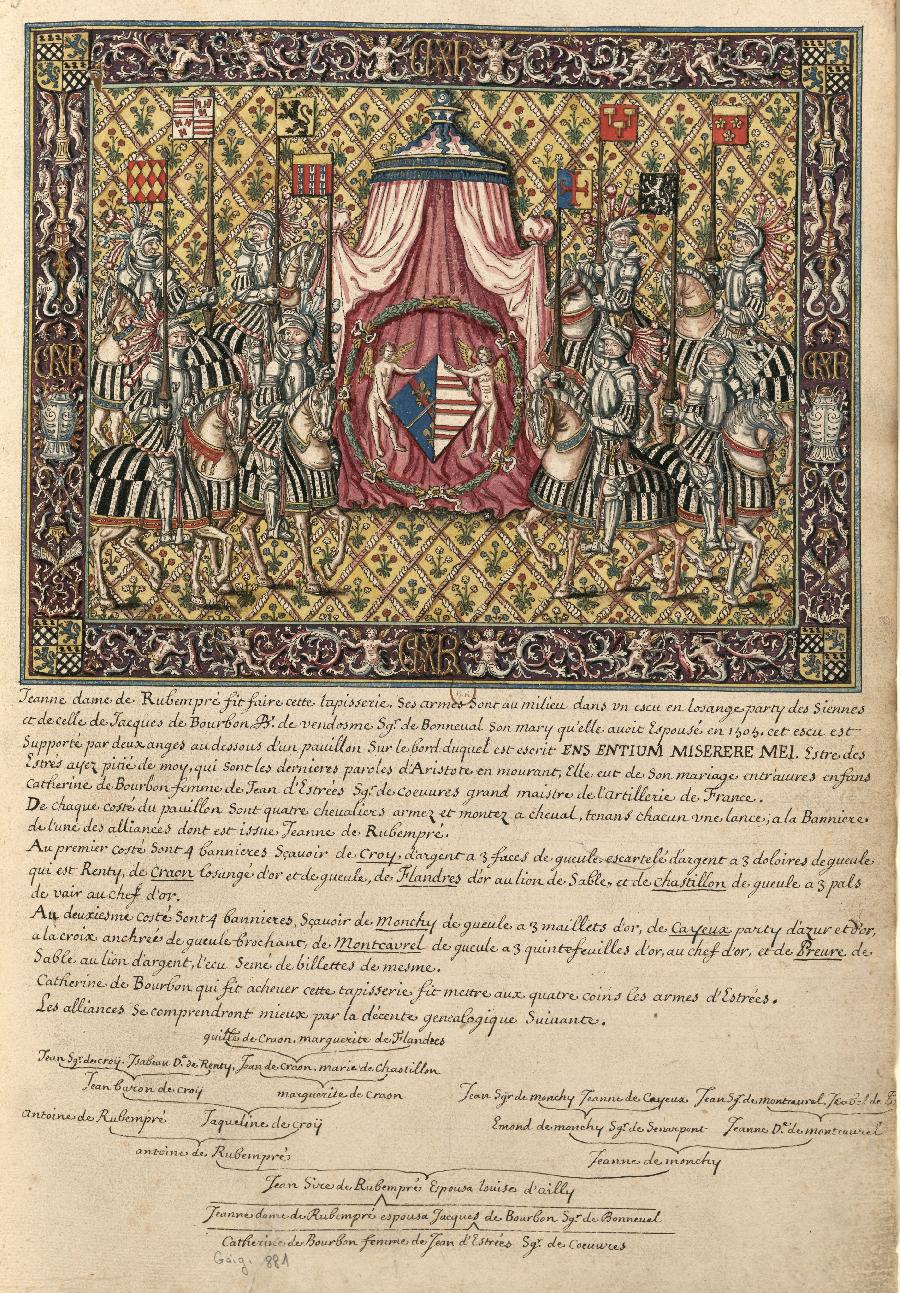 Jeanne dame de Rubempré fit faire cette tapisserie. Ses armes Sont au milieu dans vn escu en losange party des Siennes
et de celle de Jacques de Bourbon B. de vendosme Sgr. de Bonneual Son mary qu'elle auoit Espousé en 1505. cet escu est
Supporté par deux anges au dessous d'un pauillon Sur le bord duquel est escrit ENS ENTIUM MISERERE MEI. Estre des
Estres ayez pitié de moy, qui Sont les dernieres paroles d'Aristote en mourant, Elle eut de Son mariage entr'autres enfans
Catherine de Bourbon femme de Jean d'Estrées Sgr. de coeuures grand maistre de l'artillerie de France.
De chaque costé du pauillon Sont quatre cheualiers armez et montez a cheual, tenans chacun vne lance, a la Banniere
de l'une des alliances dont est issue Jeanne de Rubempré.
Au premier costé Sont 4 bannieres Sçauoir de Croy, d'argent a 3 faces de gueule escartelé d'argent a 3 doloires de gueule
qui est Renty, de Craon losangé d'or et de gueule, de Flandres d'or au lion de Sable, et de chastillon de gueule a 3 pals
de vair au chef d'or.
Au deuxiesme costé Sont 4 bannieres, Sçauoir de Monchy de gueule a 3 maillets d'or, de Cayeux party d'azur et d'or,
a la croix anchrée de gueule brochant, de Montcavrel de gueule a 3 quintefeuilles d'or, au chef d'or, et de Breure de
Sable au lion d'argent, l'ecu Semé de billettes de mesme.
Catherine de Bourbon qui fit acheuer cette tapisserie fit mettre aux quatre coins les armes d'Estrées.
Les alliances Se comprendront mieux par la décente genealogique Suiuante.
guille de Craon. marguerite de Flandres
Jean Sgr. de croÿ. Isabeau De. de Renty. Jean de Craon. marie de chastillon
Jean baron de croÿ marguerite de Craon Jean Sgr de monchy Jeanne de Cayeux Jean Sgr. de montcavrel.
antoine de Rubempré Jaqueline de croÿ Emond de monchy Sgr. de Senarpont Jeanne De. de montcavrel
antoine de Rubempré Jeanne de monchy
Jean Sire de Rubempré Espousa louise d'ailly
Jeanne dame de Rubempré espousa Jacques de Bourbon Sgr. de Bonneual
Catherine de Bourbon femme de Jean d'Estrées Sgr. de Coeuures
Gaig. 881